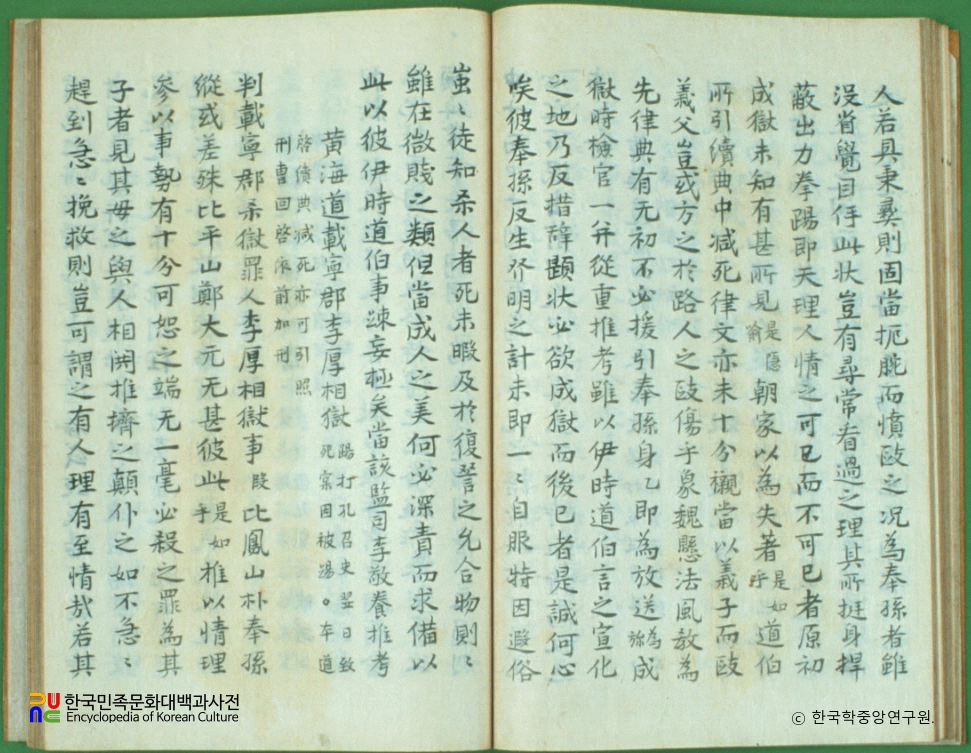 人若具秉彛則固當扼腕而憤歐之况為奉孫者雖
沒省覺目仵此狀豈有尋常看過之理其所挺身捍
蔽出力拳踢即天理人情之可已而不可已者原初
成獄未知有甚所見是喩隱朝家以為失著是如乎道伯
所引續典中减死律文亦未十分襯當以義子而歐
義父豈或方之於路人之歐傷乎象魏懸法風敎為
先律典有无初不必援引奉孫身乙即為放送為旀成
獄時檢官一并從重推考雖以伊時道伯言之宣化
之地乃反措辭題狀必欲成獄而後已者是誠何心
唉彼奉孫反生발明之計未即一〻自服特因遐俗
蚩〻徒知杀人者死未暇及於復讐之允合物則〻
雖在微賤之類但當成人之美何必深責而求備以
此以彼伊時道伯事踈妄極矣當該監司李敬養推考
黃海道載寧郡李厚相獄踢打孔召史翌日致
死實因被踢。本道
啓續典减死亦可引照
刑曹回啓依前加刑
判載寧郡杀獄罪人李厚相獄事段比鳳山朴奉孫
縱或差殊比平山鄭大元无甚彼此是如乎推以情理
參以事勢有十分可恕之端无一毫必殺之罪為其
子者見其母之與人相鬨推擠之顚仆之如不急〻
趕到急〻挽救則豈可謂之有人理有至情哉若其
한국민족문화대백과사전
Encyclopedia of Korean Culture
ⓒ 한국학중앙연구원.